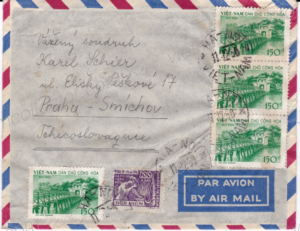 Vážený soudruh
Karel Schier
ul. Elišky Peškové 17
Praha - Smíchov
Tchecoslovaquie
VIỆT-NAM DÂN CHỦ CỘNG HÒA
150đ
VIỆT-NAM DÂN CHỦ CỘNG HÒA
150đ
VIỆT-NAM DÂN CHỦ CỘNG HÒA
150đ
VIỆT-NAM DÂN CHỦ CỘNG HÒA
150đ
HA-NOI
VIET-NAM
PAR AVION
BY AIR MAIL